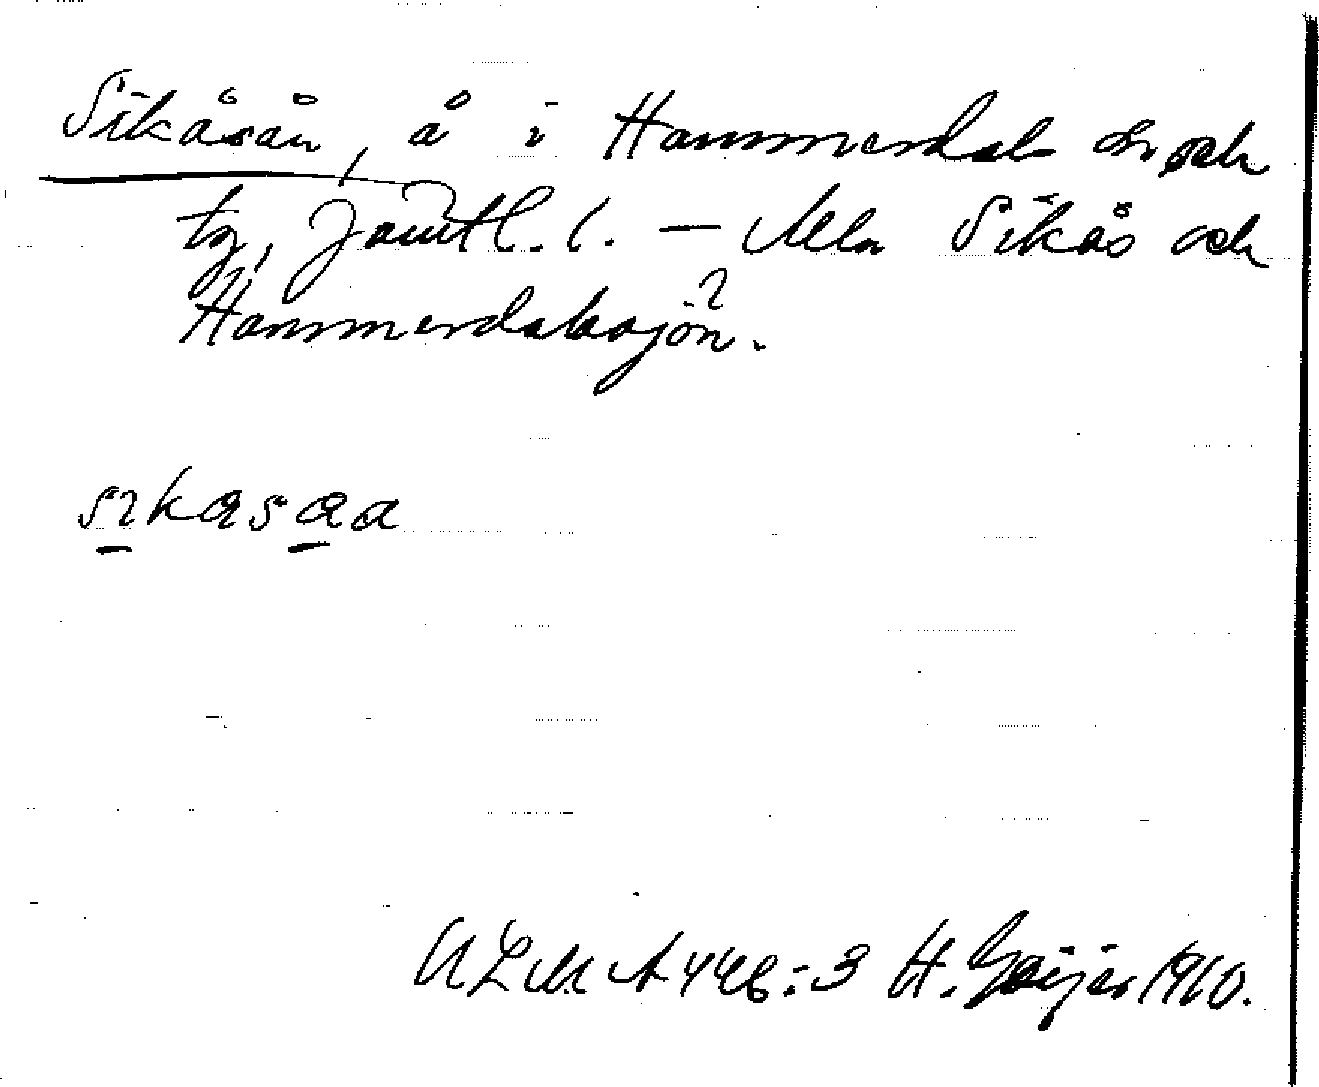 Sikåsån, å i Hammerdals sn och
tg, Jämtl. l. – Mln Sikås och
Hammerdalssjön?.
sikasaa
ULMA 446:3 H. Geijer 1910.